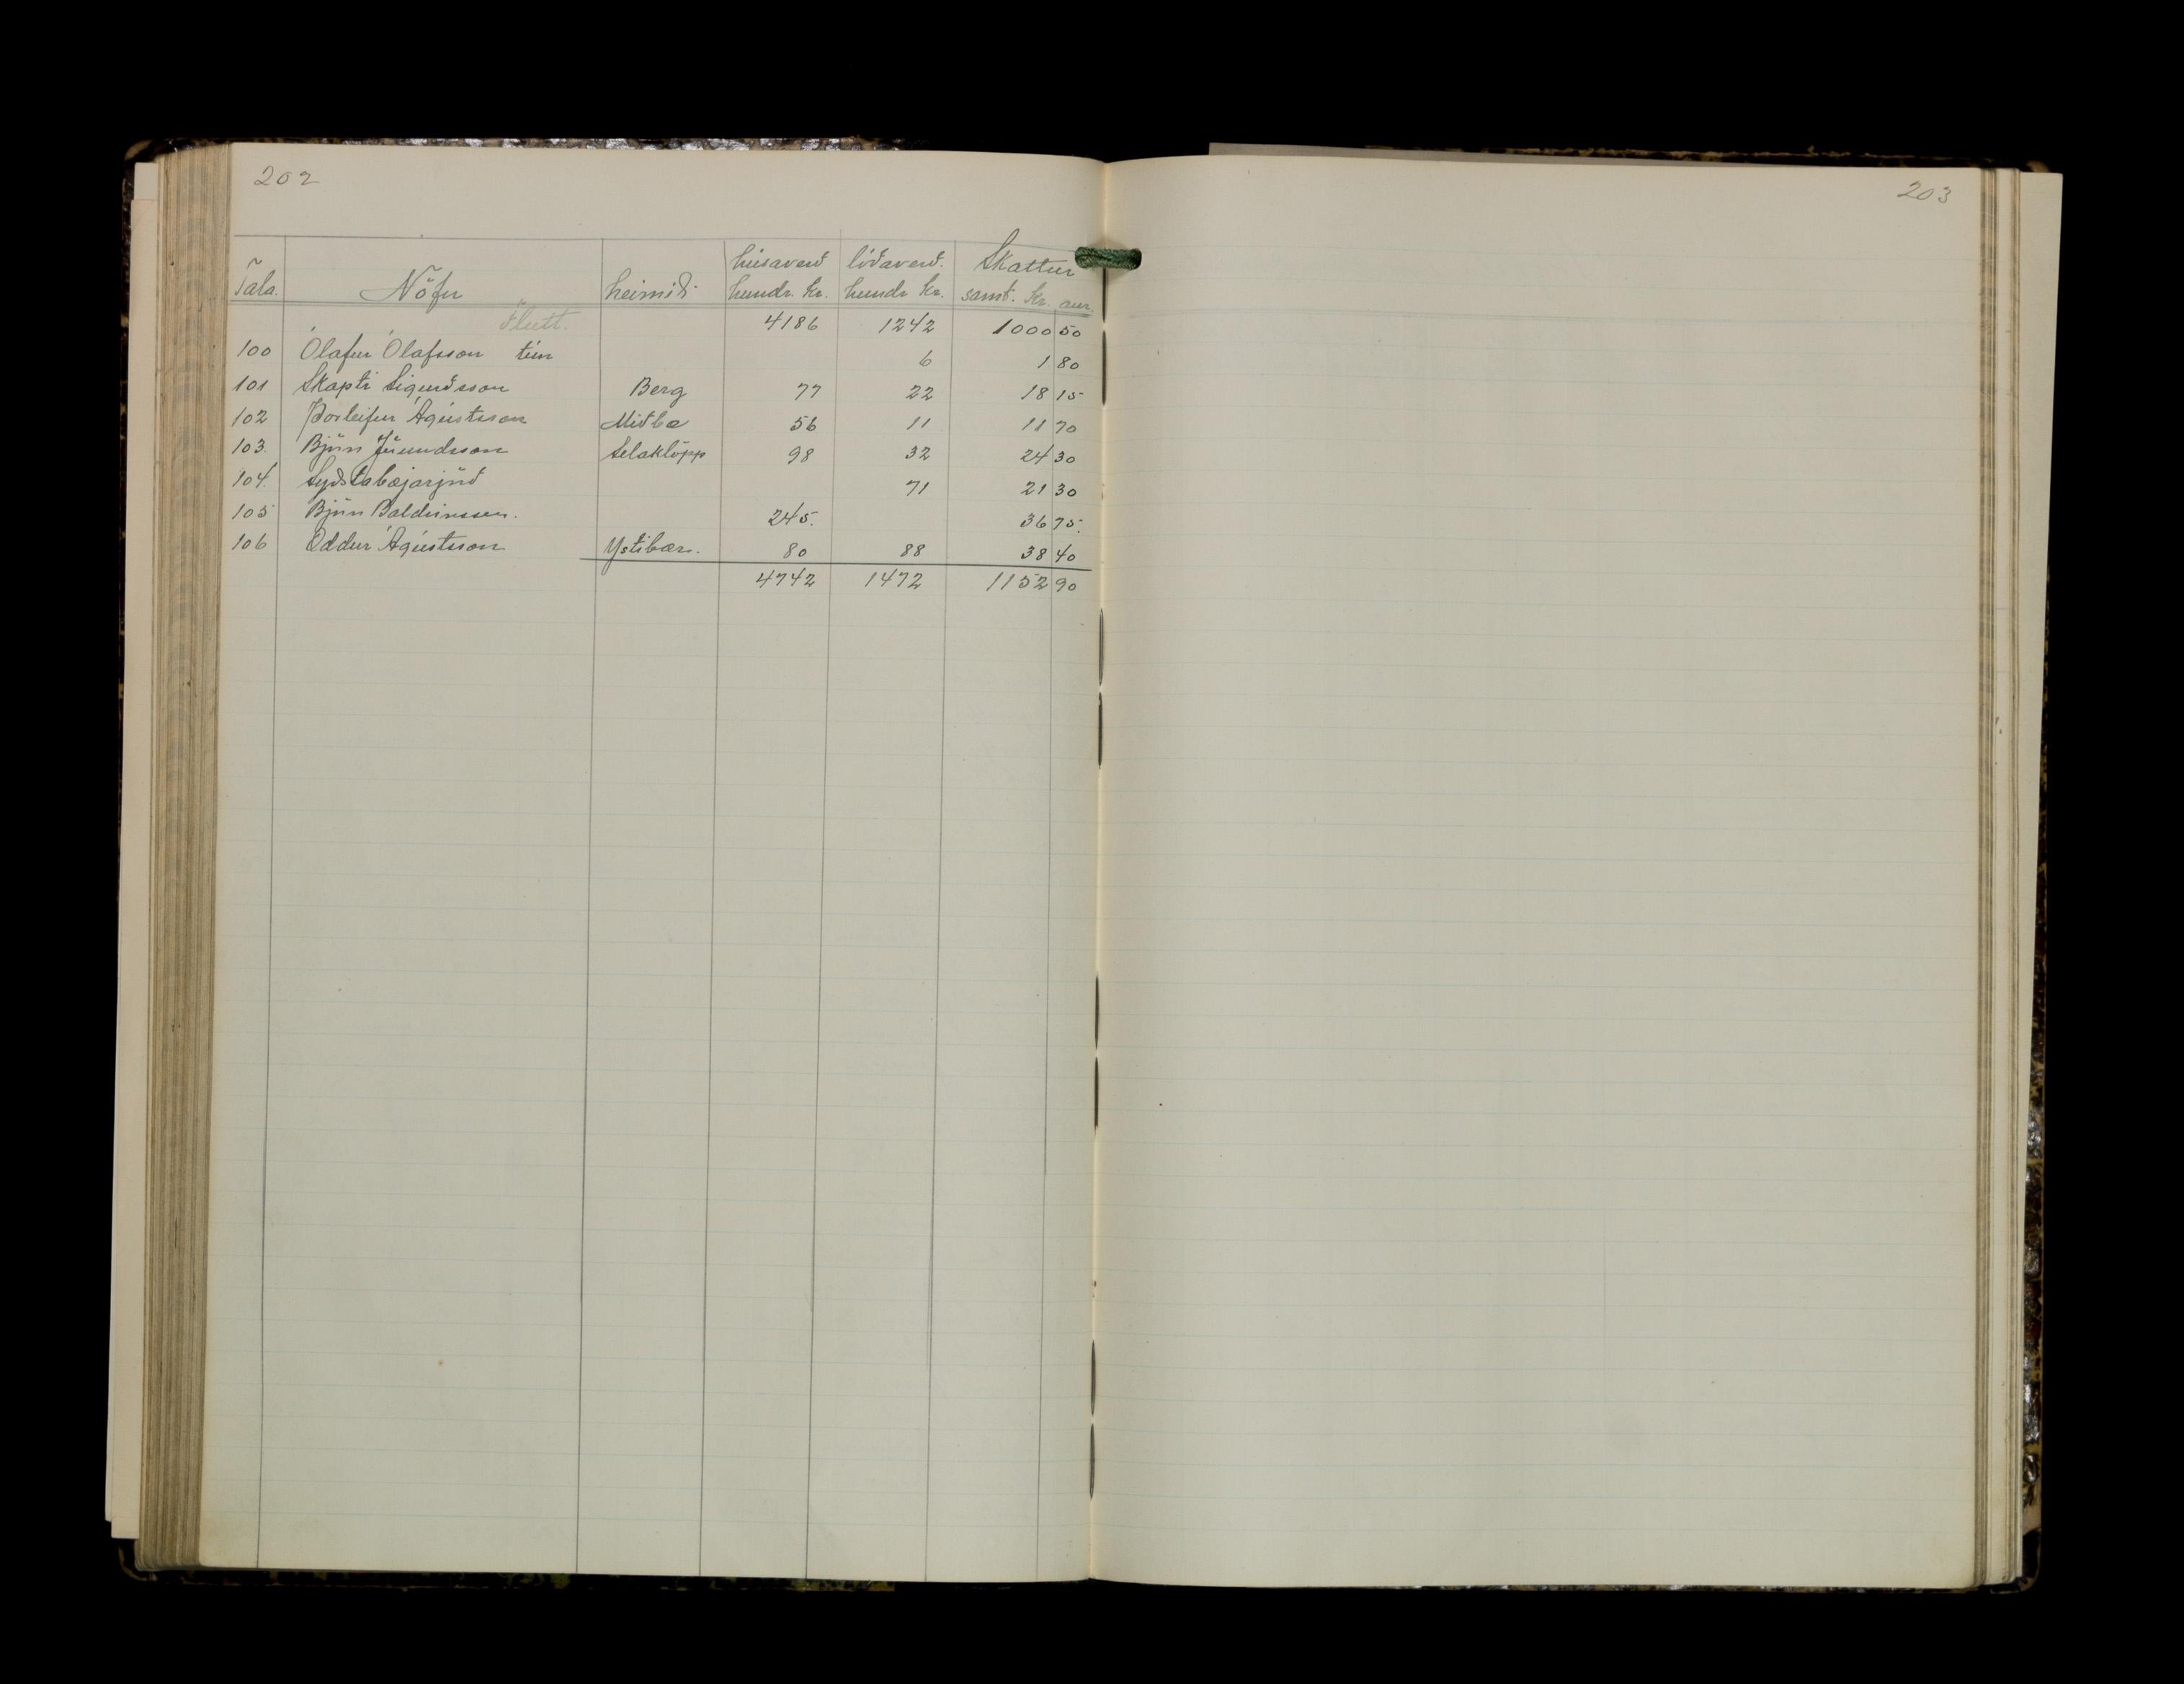 202
203
Tala. Nöfn heimili húsaverð hundr. kr. lóðaverð. hundr. kr. Skattur samt. kr. aur.
Flutt. 4186 1242 1000 50
100 Ólafur Ólafsson tún 6 1 80
101 Skapti Sigurðsson Berg 77 22 18 15
102 Þorleifur Ágústsson Miðbæ 56 11 11 70
103. Björn Jörundsson Selaklöpp 98 32 24 30
104. Syðstabæjarjörð 71 21 30
105 Björn Baldvinsson. 245. 36 75.
106 Oddur Ágústsson Ystibær. 80 88 38 40
4742 1472 1152 90